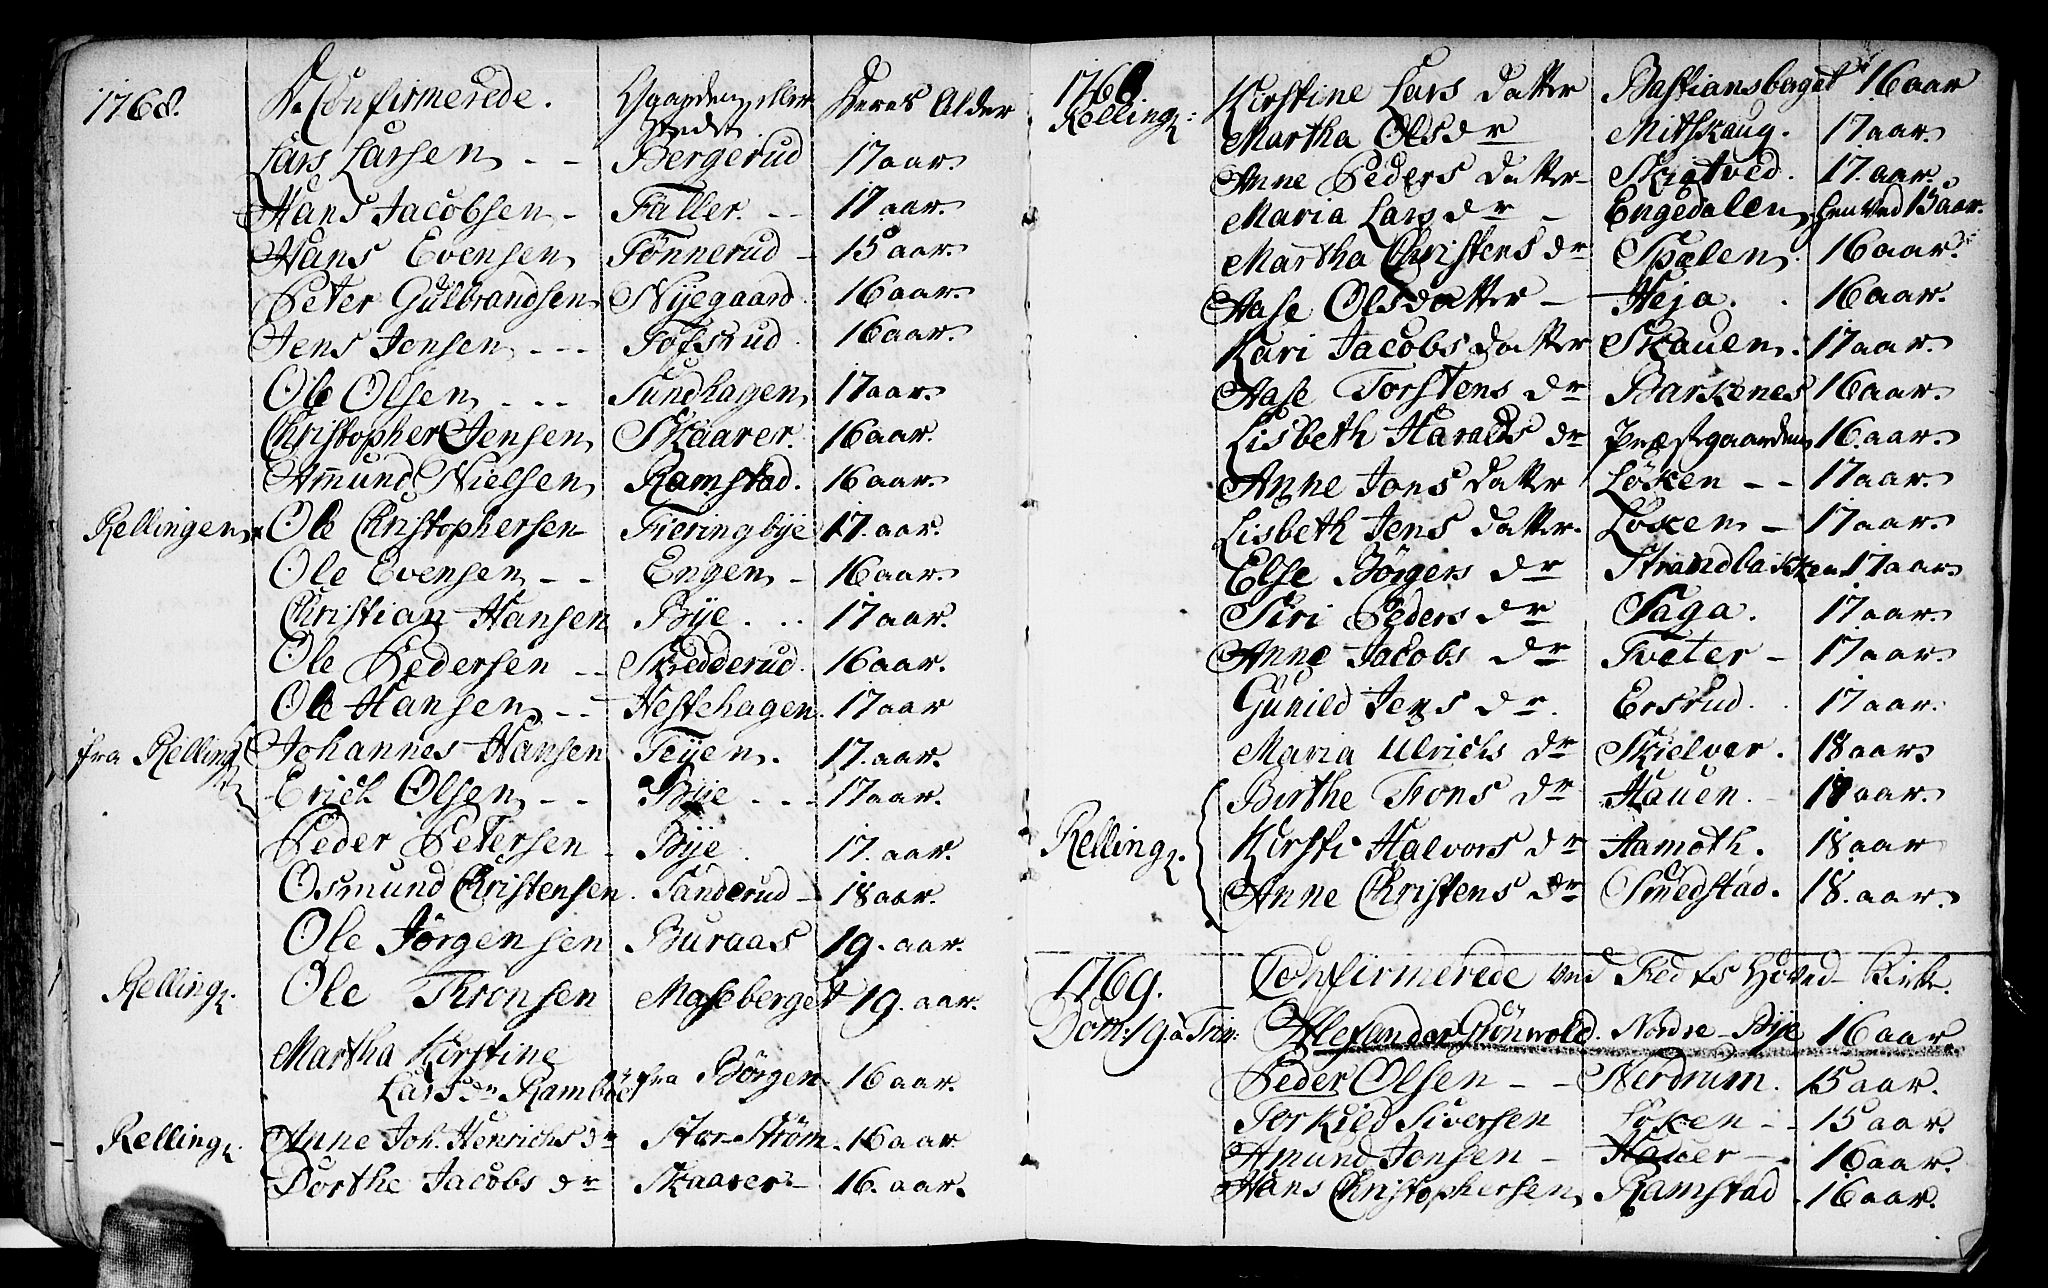 1768. De Confirmerede. Gaarden eller Deres Alder
Stedet
Lars Larsen - - Bergerud 17 aar.
Hans Jacobsen - Faller. - - 17 aar.
Hans Evensen Tønnerud - 15 aar.
Peter Gulbrandsen Nyegaard. 16 aar.
Jens Jensen - - - Tofsrud. 16 aar.
Ole Olsen - - - Sundhagen 17 aar.
Christopher Jensen Skaarer. 16 aar.
Amund Nielsen Ramstad. 16 aar.
Rellingen Ole Christophersen Fieringbye 17. aar.
Ole Evensen - - Engen - 16 aar.
Christian Hansen Bye. . . 17 aar.
Ole Pedersen - - Skedderud. 16 aar.
Ole Hansen - - Hestehagen. 17 aar
fra Relling Johannes Hansen Teyen. 17. aar.
Erich Olsen - - Bye - - - 17 aar.
Peder Petersen Bye. 17. aar.
Osmund Christensen. Sanderud - 18 aar.
Ole Jörgensen Buraas 19. aar.
Relling. Ole Thronsen Maseberget 19. aar.
Martha Kirstine
Lars dr Ramböel fra Börgen 16 aar.
Relling. Anne Joh. Henrichs dr Stor-Strøm. 16 aar
Dorthe Jacobs dr Skaarer - 16. aar.
1768 Kirstine Lars datter Bastiansberget 16 aar
Relling. Martha Ols dr Mitskaug. 17 aar.
Anne Peders datter Skiatved. 17. aar.
Maria Lars dr - Engedalen henved 15 aar.
Martha Christens dr Spælen. 16 aar.
Aase Olsdatter - Heja. . 16 aar.
Kari Jacobs datter Skauen. 17 aar.
Aase Torstens dr Barkenes 16 aar.
Lisbeth Haralds dr Præstgaarden 16. aar.
Anne Jons datter Løken - - 17 aar.
Lisbeth Jens datter. Løken - 17 aar.
Else Börgers dr Strandbakken 17 aar.
Siri Peders dr Saga. 17 aar.
Anne Jacobs dr Tveter - 17 aar.
Gunild Jens dr. Ersrud. 17 aar.
Maria Ulrichs dr Skielver. 18 aar.
Birthe Trons dr Hauen. - 18 aar.
Relling. Kirsti Halvors dr Aamoth. 18 aar
Anne Christens dr Smedstad. 18. aar.
1769. Confirmerede ved Fedts Hoved-Kirke.
Dom: 19 a Trin: Alexander Grönvold. Nordre-Bye 16 aar.
Peder Olsen - - Nerdrum. 15 aar.
Torkild Siversen Løken - - 15 aar.
Amund Jonsen - Hauer - . 16 aar.
Hans Christophersen Ramstad - 16 aar.